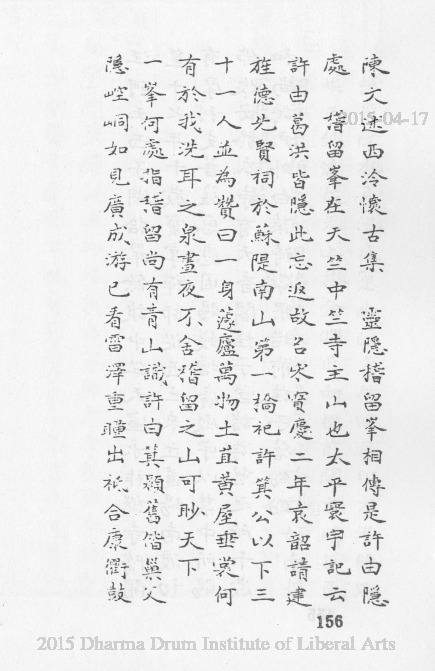 陳文述西泠懷古集　靈隱稽留峯相傳是許由隱
處　稽留峯在天竺中竺寺主山也太平寰宇記云
許由葛洪皆隱此忘返故名岑寶慶二年袁韶請建
旌德先賢祠於蘇隄南山第一橋祀許箕公以下三
十一人並為贊曰一身蘧廬萬物土苴黃屋垂裳何
有於我洗耳之泉晝夜不舍稽留之山可眇天下
一峯何處指稽留尚有青山識許由箕潁舊偕巢父
隱崆峒如見廣成游已看雷澤重瞳出祇合康衢鼓
156
2015-04-17
2015 Dharma Drum Institute of Liberal Arts